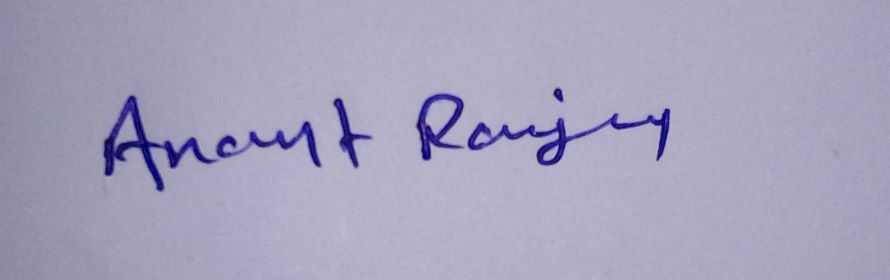 Anant Ranjan